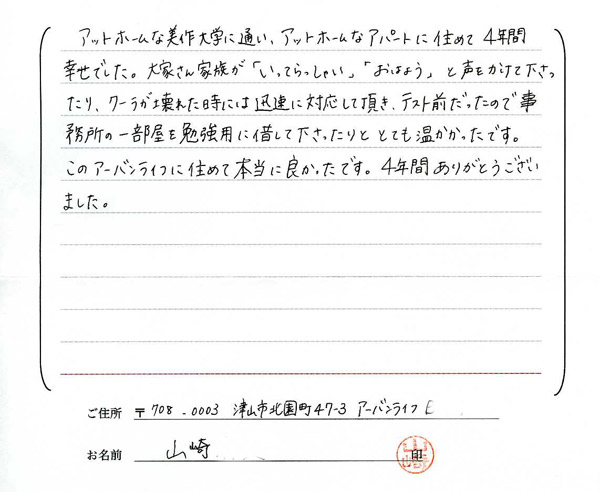 アットホームな美作大学に通い、アットホームなアパートに住めて4年間
幸せでした。大家さん家族が「いってらっしゃい」「おはよう」と声をかけて下さっ
たり、クーラが壊れた時には迅速に対応して頂き、テスト前だったので事
務所の一部屋を勉強用に借して下さったりと とても温かかったです。
このアーバンライフに住めて本当に良かったです。4年間ありがとうござい
ました。
ご住所 〒708-0003 津山市北園町47-3 アーバンライフ E
お名前 山崎 印